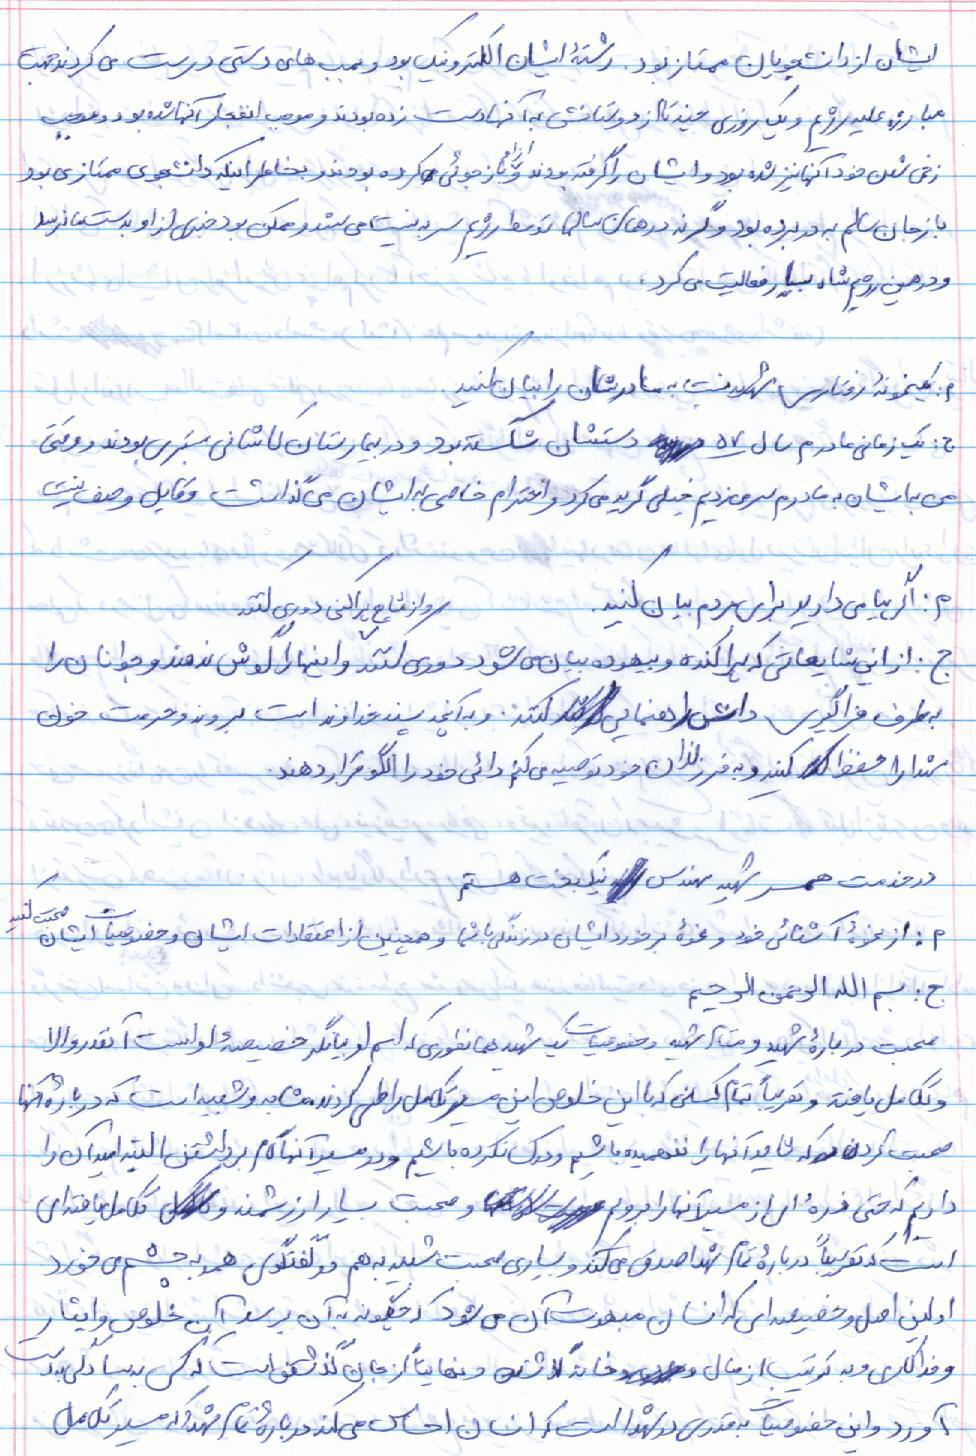 ایشان از دانشجویان ممتاز بود. رشتهٔ ایشان الکترونیک بود و بمب های دستی درست می کردند جهت
مبارزه علیه رژیم و یک روزی چند تا از دوستانش به آنها دست زده بودند و موجب انفجار آنها شده بود و موجب
زخمی شدن خود آنها نیز شده بود و ایشان را گرفته بودند و از او بازجوئی می کرده بودند و بخاطر اینکه دانشجوی ممتازی بود
باز جان سالم به در برده بود وگرنه در همان سالها توسط رژیم سر به نیست می شد و ممکن بود خبری از او بدست ما نرسد
و در همین رژیم شاه بسیار فعالیت می کرد.
م: یک نمونهٔ رفتاری شهید نسبت به مادرشان را بیان کنید.
ج: یک زمانی مادرم سال ۵۷ دستشان شکسته بود و در بیمارستان کاشانی بستری بودند و وقتی
من با ایشان به مادرم سر می زدیم خیلی گریه می کرد و احترام خاصی به ایشان می گذاشت و قابل وصف نیست
م: اگر پیامی دارید برای مردم بیان کنید.
و از شایع پراکنی دوری کنند
ج: از این شایعاتی که پراکنده و بیهوده بیان می شود دوری کنند و اینها را گوش ندهند و جوانان را
به طرف فراگیری دانش راهنمایی کنند. و به آنچه پسند خداوند است بروند و حرمت خون
شهدا را حفظ کنند و به فرزندان خود توصیه می کنم دائی خود را الگو قرار دهند.
در خدمت همسر شهید مهندس نیکبخت هستم
م: از نحوهٔ آشنائی خود و نحوهٔ برخورد ایشان در زندگی با شما و همچنین از اعتقادات ایشان و خصوصیات ایشان صحبت کنید
ج: بسم الله الرحمن الرحیم
صحبت دربارهٔ شهید و مقام شهید و خصوصیات یک شهید همانطوری که اسم او بیانگر خصیصهٔ اوست آنقدر والا
و تکامل یافته و تقریباً تمام کسانی که با این خلوص این مسیر تکامل را طی کردند مشابه و شبیه است که دربارهٔ آنها
صحبت کردن که شاید آنها را نفهمیده باشیم و درک نکرده باشیم و در مسیر آنها گام برداشتن البته امید آن را
داریم که حتی ذره ای از مسیر آنها را برویم و صحبت بسیار ارزشمند و تکامل یافته ای
است که تقریباً دربارهٔ تمام شهدا صدق می کند و بسیاری صحبت شبیه به هم در گفتگوی همه به چشم می خورد
اولین اصل و خصیصه ای که انسان مبهوت آن می شود که چگونه به آن برسد آن خلوص و ایثار
و فداکاری و به ترتیب از مال و خانه گذشتن و نهایتاً از جان گذشتن است که کسی به سادگی بدست
آورد و این خصوصیات بقدری در شهدا است که انسان احساس می کند دربارهٔ تمام شهدا که مسیر تکامل